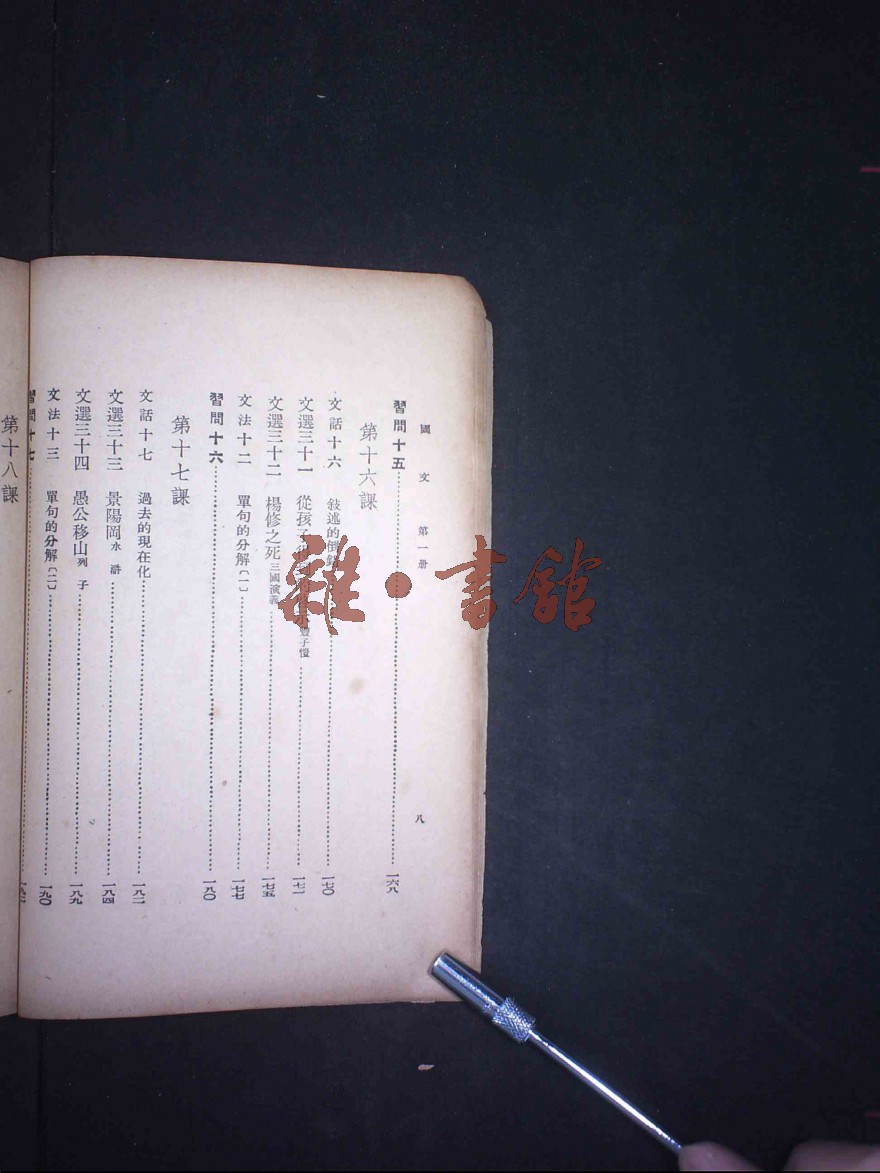 國文 第一册 八
習問十五 一六八
第十六課
文話十六 敍述的倒錯 一七〇
文選三十一 從孩子 豐子愷 一七一
文選三十二 楊修之死 三國演義 一七五
文法十二 單句的分解(一) 一七七
習問十六 一八〇
第十七課
文話十七 過去的現在化 一八二
文選三十三 景陽岡 水滸 一八四
文選三十四 愚公移山 列子 一八九
文法十三 單句的分解(二) 一九〇
習問十七
第十八課
雜·書館